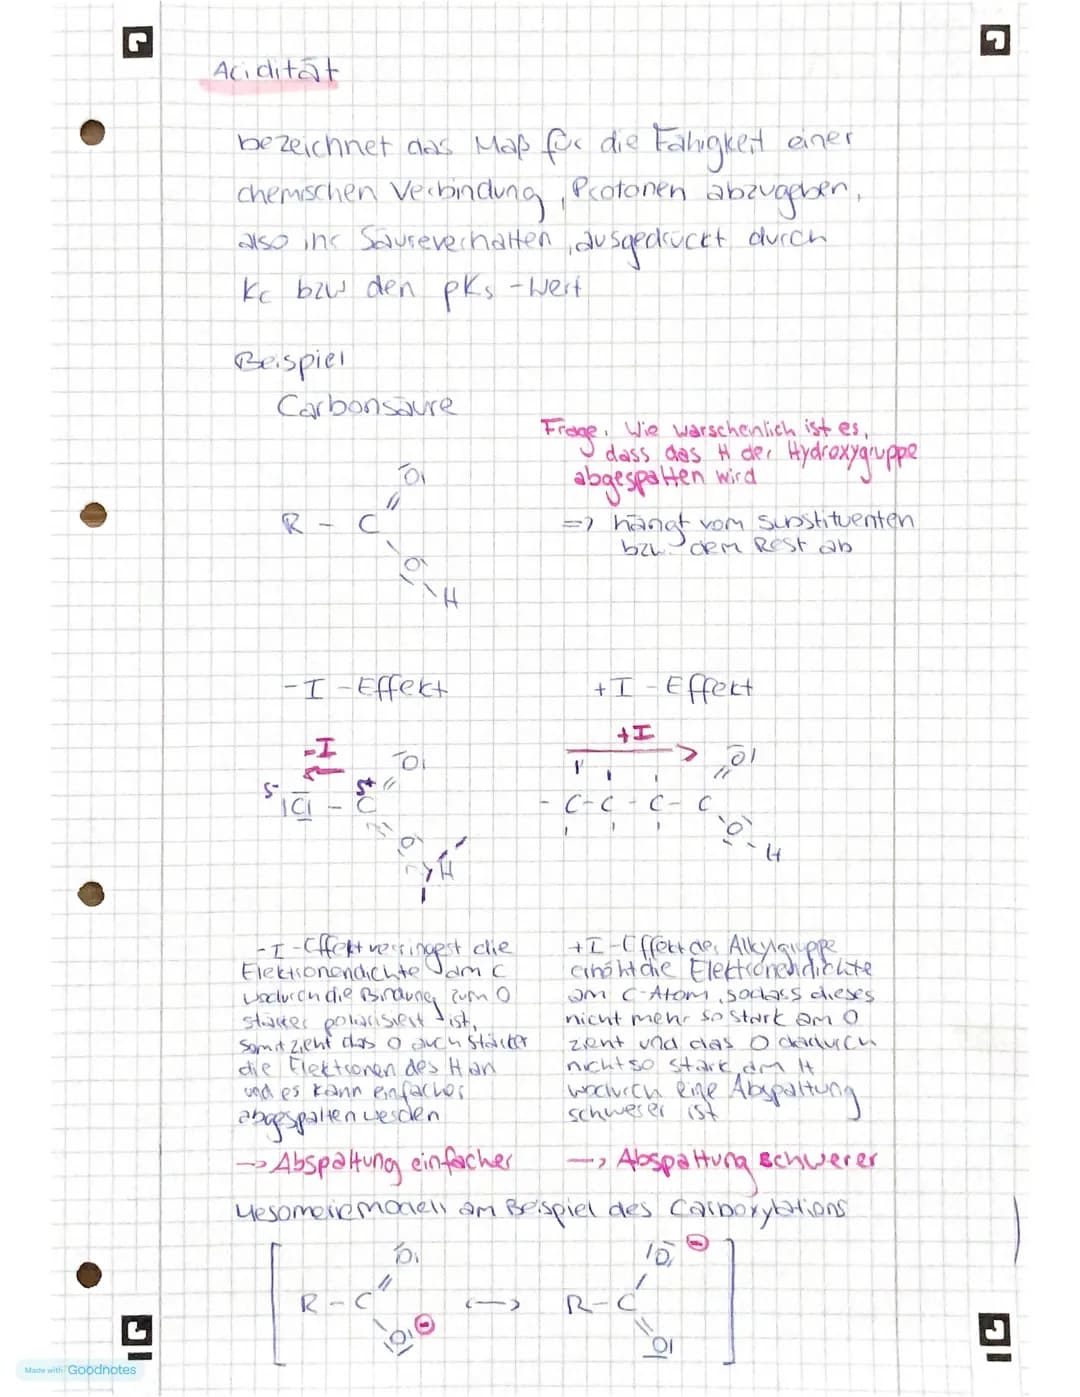 Acidität
bezeichnet das Maß für die Fähigkeit einer
chemischen Verbindung, Protonen abzugeben,
also ihr Säureverhalten, ausgedrückt durch
Kc bzw den pKs-Wert
Beispiel
Carbonsäure
Frage: Wie warschenlich ist es,
dass das H der Hydroxygruppe
abgespalten wird
=> hängt vom Substituenten
bzw. dem Rest ab
O
R - C
O
H
-I-Effekt
+I-Effekt
-I
O
δ- δ+
Cl - C
O
H
+I
O
- C-C-C-C
O
H
-I-Effekt verringert die
Elektronendichte am C
wodurch die Bindung zum O
stärker polarisiert ist,
somit zieht das O auch stärker
die Elektronen des H an
und es kann einfacher
abgespalten werden
-> Abspaltung einfacher
+I-Effekt der Alkylgruppe
erhöht die Elektronendichte
am C-Atom, sodass dieses
nicht mehr so stark am O
zieht und das O dadurch
nicht so stark am H
wodurch eine Abspaltung
schwerer ist
-> Abspaltung schwerer
Mesomeriemodell am Beispiel des Carboxylations
O O ⊖
R - C <-> R - C
O ⊖ O
Made with Goodnotes